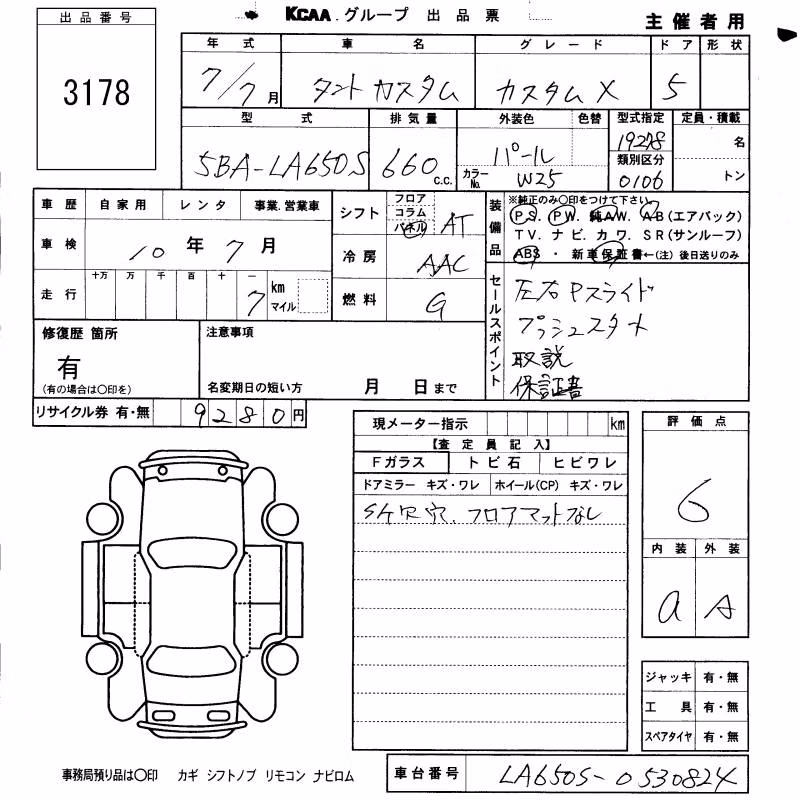 KCAA グループ 出品票
主催者用
出品番号
3178
年式 車名 グレード ドア 形状
7/7月 タントカスタム カスタムX 5
型式 排気量 外装色 色替 型式指定 定員・積載
5BA-LA650S 660 c.c. パール 19278 名
カラーNo. W25 類別区分 0106 トン
車歴 自家用 レンタ 事業.営業車
車検 10年7月
走行 十万 万 千 百 十 一
7 km マイル
シフト フロア コラム パネル AT
冷房 AAC
燃料 G
装備品 ※純正のみ〇印をつけて下さい
P S. P W. 純A W. A B (エアバック)
T V. ナ ビ. カ ワ. S R (サンルーフ)
ABS ・ 新車保証書←(注) 後日送りのみ
セールスポイント
左右Pスライド
プッシュスタート
取説
保証書
修復歴 箇所
有
(有の場合は〇印を)
注意事項
名変期日の短い方 月 日まで
リサイクル券 有・無 9280円
現メーター指示 km
【査定員記入】
Fガラス トビ石 ヒビワレ
ドアミラー キズ・ワレ ホイール(CP) キズ・ワレ
フロアマットなし
評価点
6
内装 外装
a A
ジャッキ 有・無
工具 有・無
スペアタイヤ 有・無
事務局預り品は〇印 カギ シフトノブ リモコン ナビロム
車台番号 LA650S-0530824